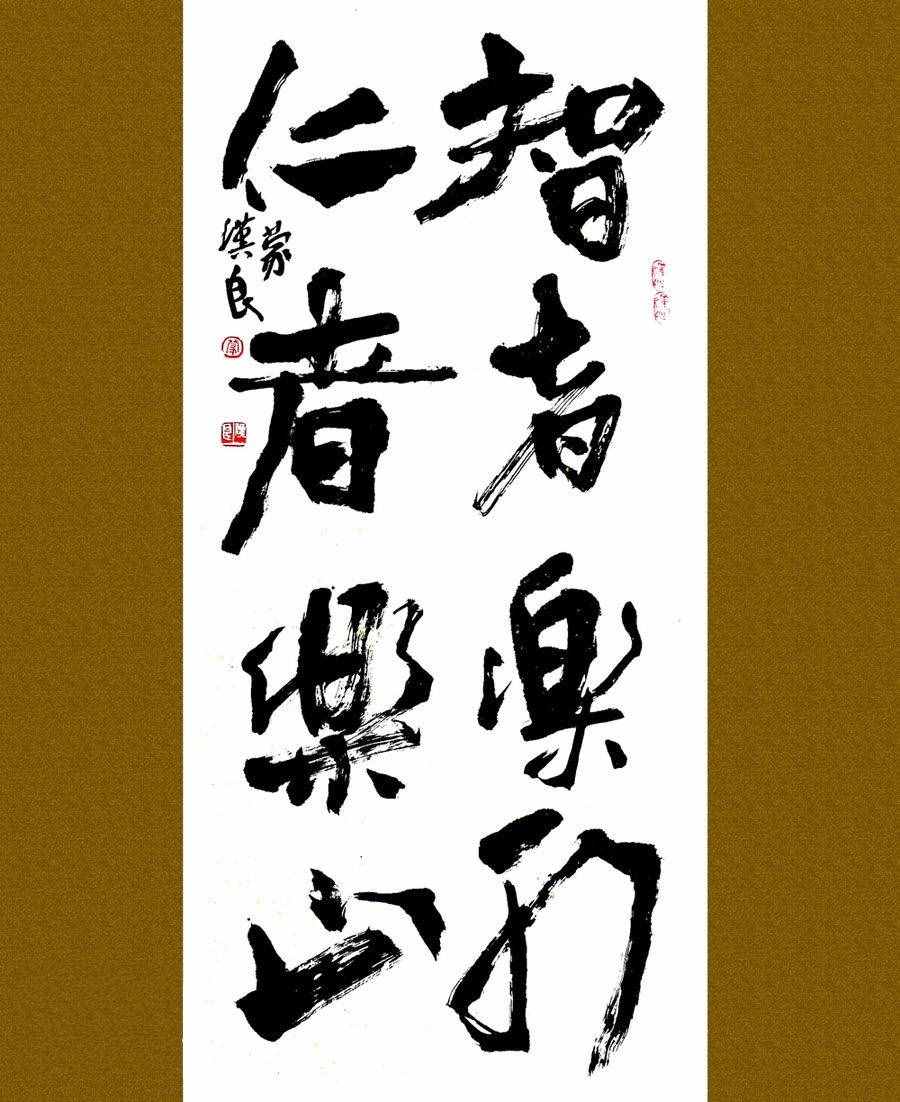 智者樂水
仁者樂山
蒙
漢良